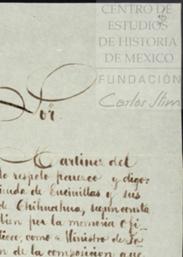 CENTRO DE
ESTUDIOS
DE HISTORIA
DE MEXICO
FUNDACIÓN
Carlos Slim
Sor
Martinez del
do respeto parezco y digo:
cienda de Encinillas y sus
de Chihuahua, segun consta
por la memoria
como Ministro de
n de la composicion que